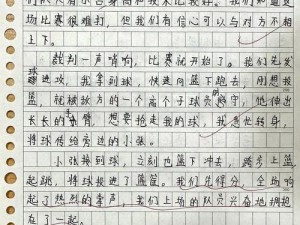 场比赛很难打，但我们有信心可以与对方不相
上下。
裁判一声哨响，比赛就开始了。我们先发
球进攻，我拿到球，快速向篮下跑去，刚想投
篮，就被敌方的一个高个子球员防守，他伸出
长长的手臂，想要抢走我的球，我急忙转身，
将球传给旁边的小张。
小张接到球，立刻也篮下冲去，跨步上篮
起跳，将球投进了篮筐。我们先得分，全场响
起了热烈的掌声，我们上场的队员兴奋地拥抱
在了一起。